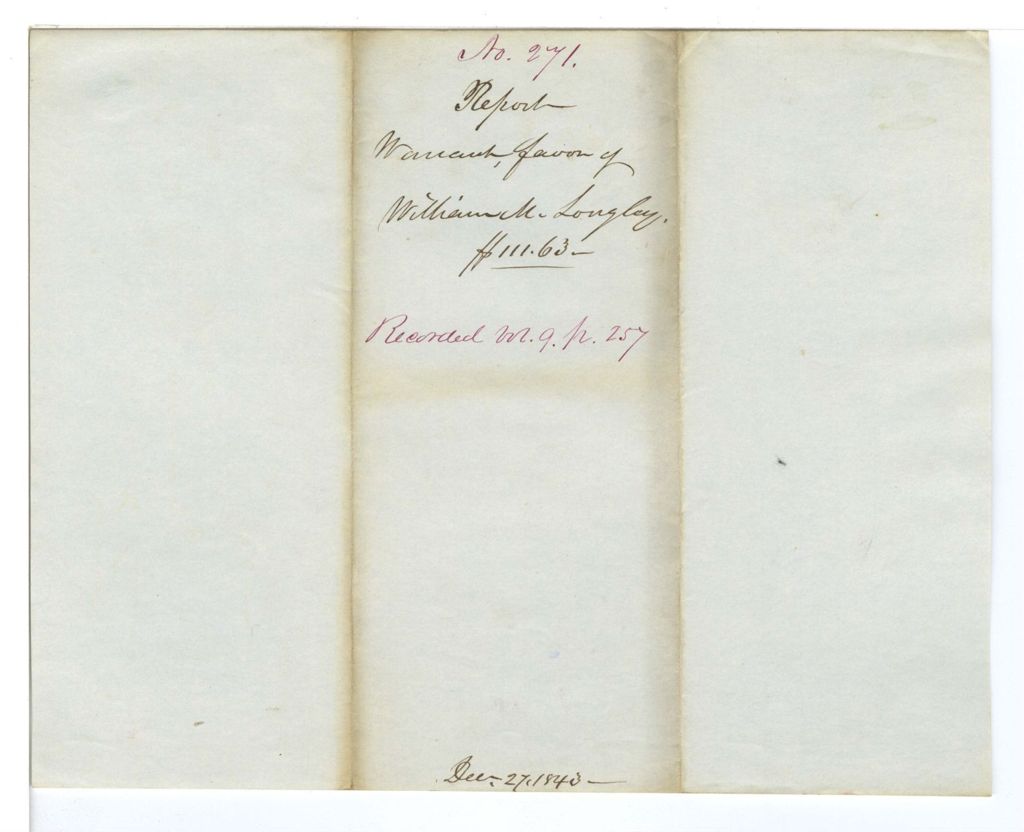 No. 271.
Report
Warrant, favor of
William M. Longley.
$111.63-
Recorded Vol. 9. p. 257
Dec. 27, 1843-